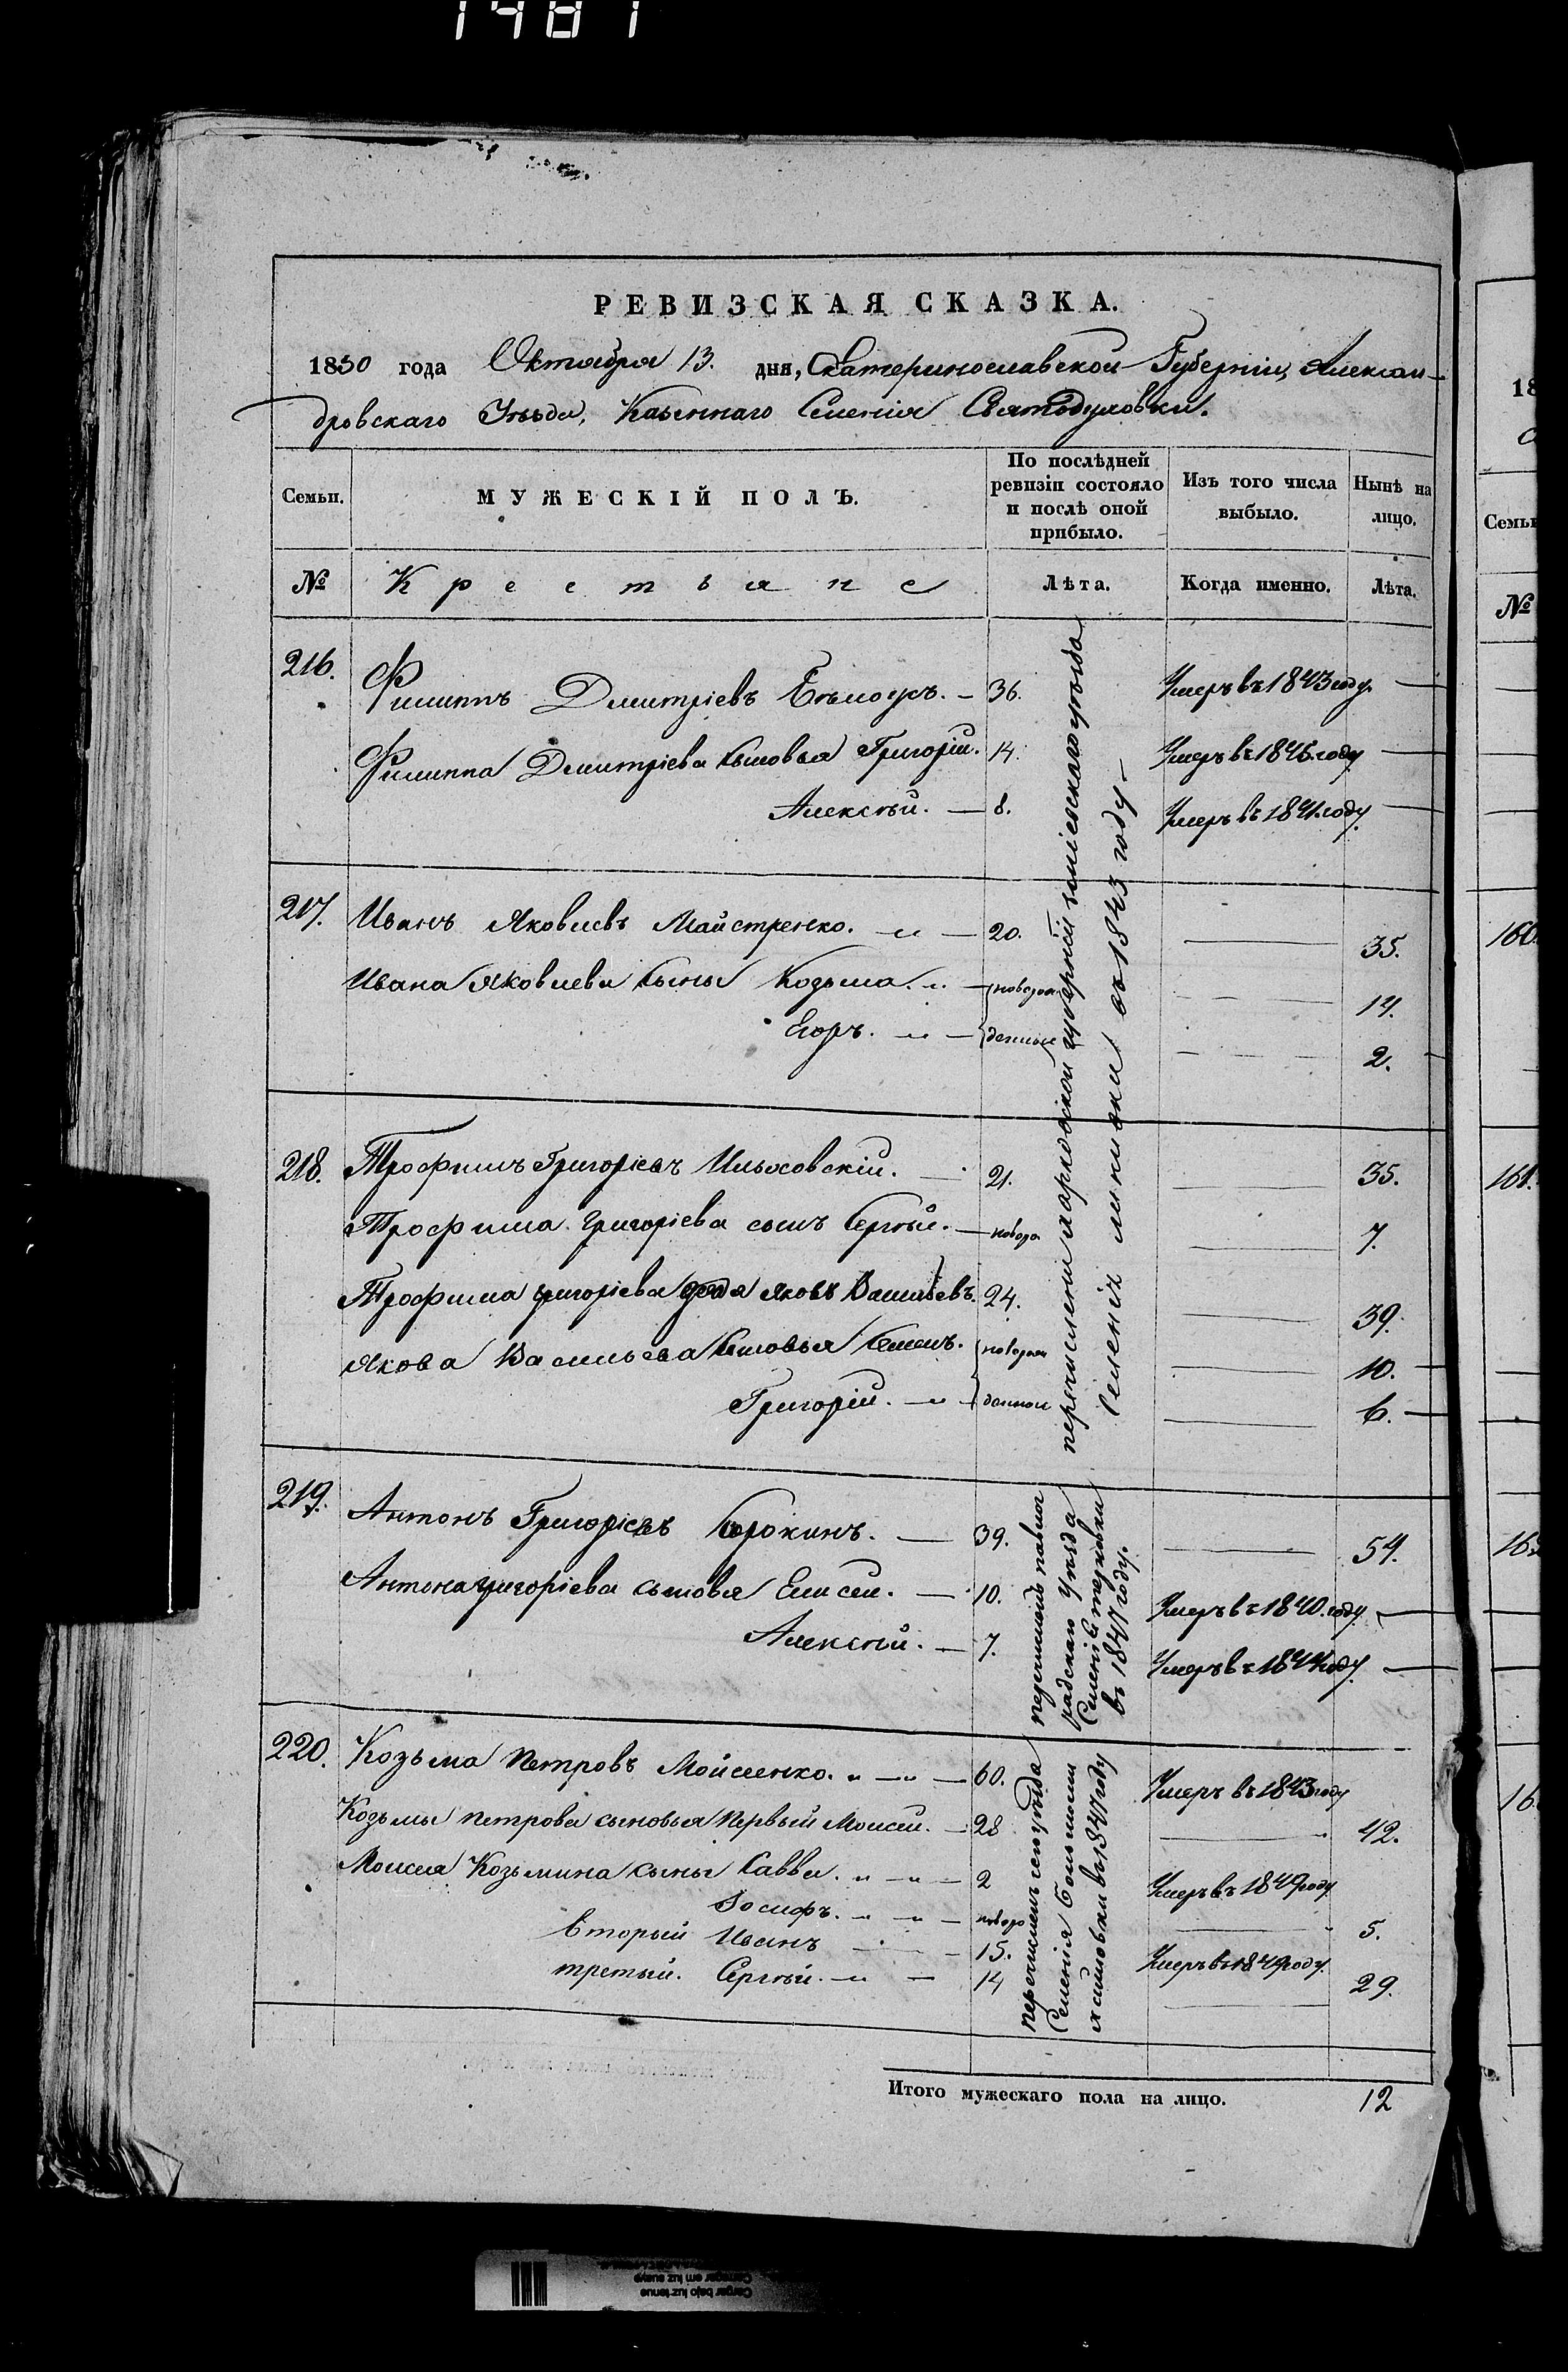 1481
РЕВИЗСКАЯ СКАЗКА.
1850 года Октября 13. дня, Екатеринославской Губерніи, Алексан-
дровскаго Уѣзда, Казеннаго Селенія Святодуховки.
Семьи.
МУЖЕСКІЙ ПОЛЪ.
По послѣдней ревизіи состояло и послѣ оной прибыло.
Изъ того числа выбыло.
Нынѣ на лицо.
№ Крестьяне Лѣта. Когда именно. Лѣта.
216. Филиппъ Дмитріевъ — 36. Умеръ въ 1843 году. —
Филиппа Дмитріева сыновья Григорій. 14. Умеръ въ 1845. году —
Алексѣй. — 8. Умеръ въ 1841. году. —
217. Иванъ Яковлевъ Майстренко. — 20. — 35.
Ивана Яковлева сыны Козьма. — новорож — 14.
Егоръ. — денные — 2.
218. Трофимъ Григорієвъ Ильховскій. — 21. — 35.
Трофима Григорієва сынъ Сергѣй. — новоро — 7.
Трофима Григорієва дядя Яковъ Васильевъ. 24. — 39.
Якова Васильева сыновья Семенъ. новорож — 10. —
Григорій. — денные — 6. —
перечислены Харковской губерніи Зміевскаго уѣзда
Селенія въ 1843 году —
219. Антонъ Григорієвъ Сорокинъ. — 39. — 54.
Антона Григорієва сыновья Елисей. — 10. Умеръ въ 1840. году. —
Алексѣй. — 7. Умеръ въ 1844 году. —
перечисленъ Павло
градскаго Уѣзда
Селенія Терновки
въ 1847 году.
220. Козьма Петровъ Мойсеенко. — 60. Умеръ въ 1843 году
Козьмы Петрова сыновья Первый Моисей. — 28 — 42.
Моисея Козьмина сыны Савва. — 2 Умеръ въ 1849 году
Іосифъ. — новоро — 5.
Вторый Иванъ — 15. Умеръ въ 1849 году.
третый. Сергѣй. — 14 — 29.
перечисленъ сего уѣзда
Селенія Большой
въ 1847 году
Итого мужескаго пола на лицо. 12
18
Семьи
№
160.
161.
16
16
Cargar bajo luz tenue
Carregar em luz suave